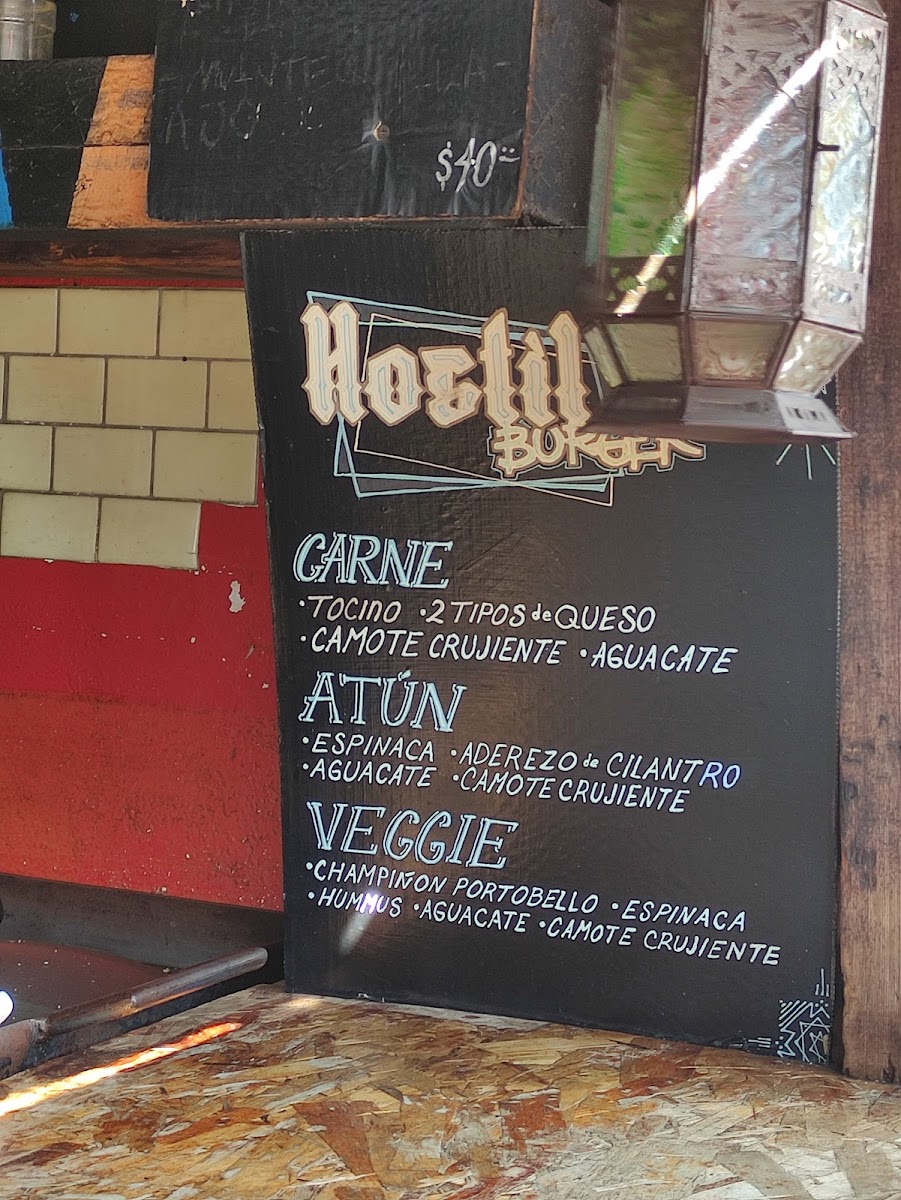 AJO
$40
Hostil
BURGER
CARNE
·TOCINO ·2 TIPOS de QUESO
·CAMOTE CRUJIENTE ·AGUACATE
ATÚN
·ESPINACA ·ADEREZO de CILANTRO
·AGUACATE ·CAMOTE CRUJIENTE
VEGGIE
·CHAMPIÑON PORTOBELLO ·ESPINACA
·HUMMUS ·AGUACATE ·CAMOTE CRUJIENTE